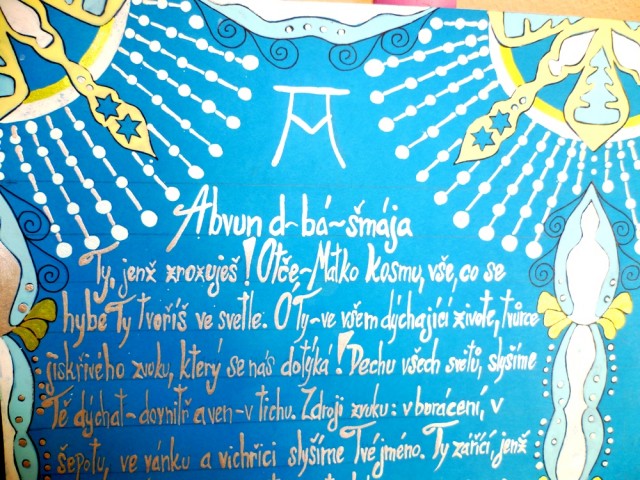 Abvun d~bá~šmája
Ty, jenž zrozuješ! Otče~Matko kosmu, vše, co se
hýbe Ty tvoříš ve svetle. Ó Ty~ve všem dýchající živote, tvůrce
jiskřivého zvuku, který se nás dotýká! Dechu všech svetů, slyšíme
Tě dýchat~dovnitř a ven~v tichu. Zdroji zvuku: v burácení, v
šepotu, ve vánku a vichřici slyšíme Tvé jméno. Ty zářící, jenž